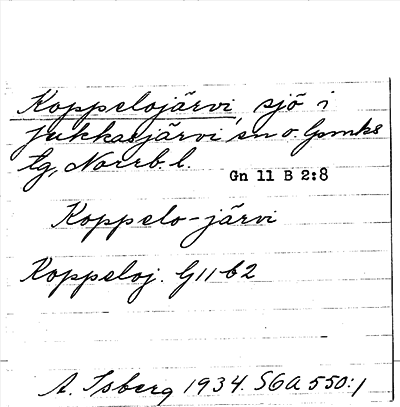 Koppelojärvi, sjö i
Jukkasjärvi sn o. Gnmks
tg, Norrb. l.
Gn 11 B 2:8
Koppelo-järvi
Koppeloj. G11 b2
A. Isberg 1934. SGA 550:1